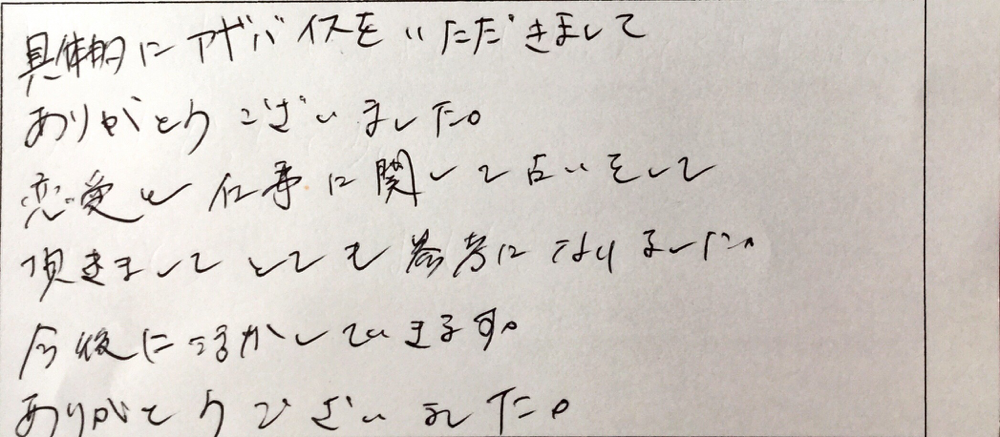 具体的にアドバイスをいただきまして
ありがとうございました。
恋愛と仕事に関して占いをして
頂きましてとても参考になりました。
今後に活かしていきます。
ありがとうございました。